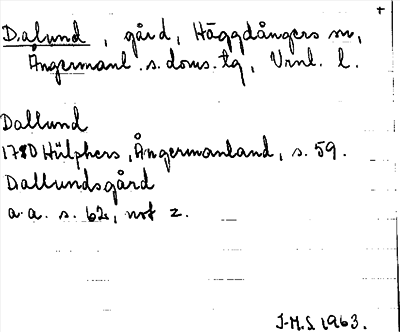 Dalund, gård, Häggdångers sn,
Ångermanl. s. doms. tg, Vrnl. l.
Dallund
1780 Hülphers, Ångermanland, s. 59.
Dallundsgård
a.a. s. 62, not 2.
J-M.S 1963.